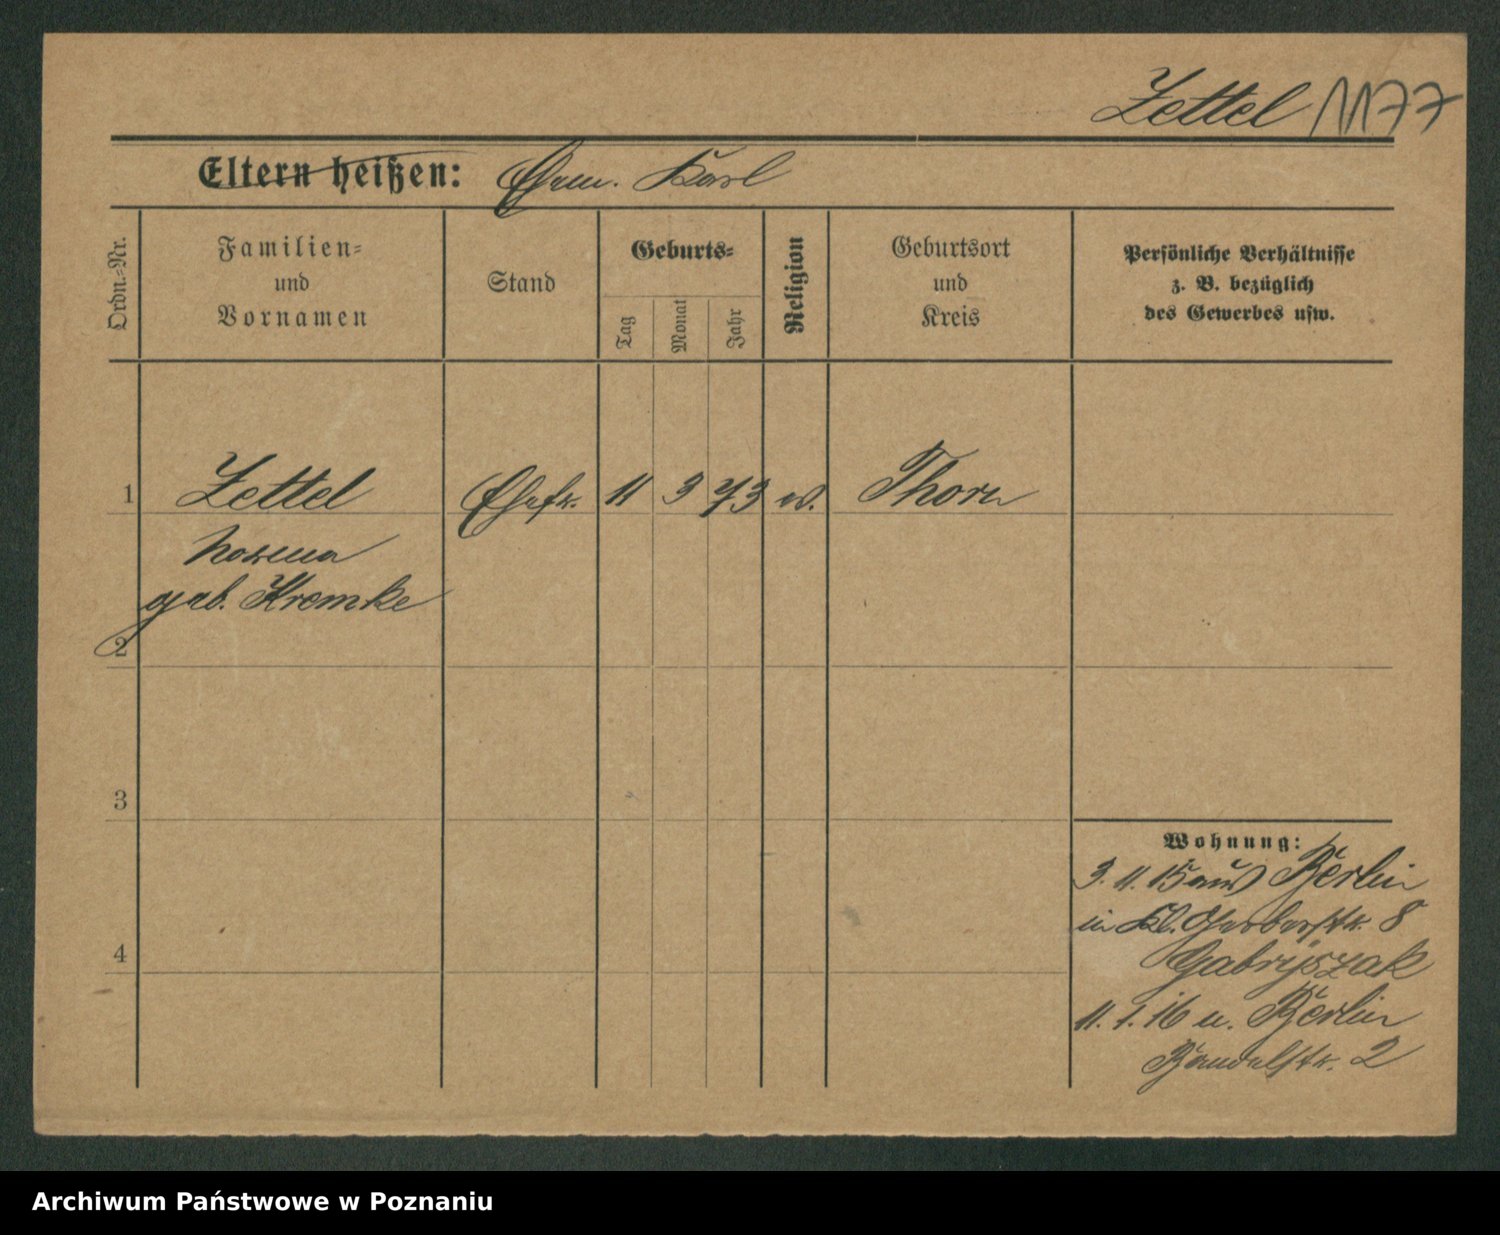 Zettel 1177
Eltern heißen: Ehem. Karl
Ordn.=Nr.
Familien=
und
Vornamen
Stand
Geburts=
Tag
Monat
Jahr
Religion
Geburtsort
und
Kreis
Persönliche Verhältnisse
z. B. bezüglich
des Gewerbes usw.
1 Zettel Ehefr. 11 3 73 ev. Thorn
geb. Kremke
2
3
4
Wohnung:
3. 11. 15 aus Berlin
in Kl. Gerberstr. 8
Gabryszak
11. 1. 16 n. Berlin
Bandelstr. 2
Archiwum Państwowe w Poznaniu